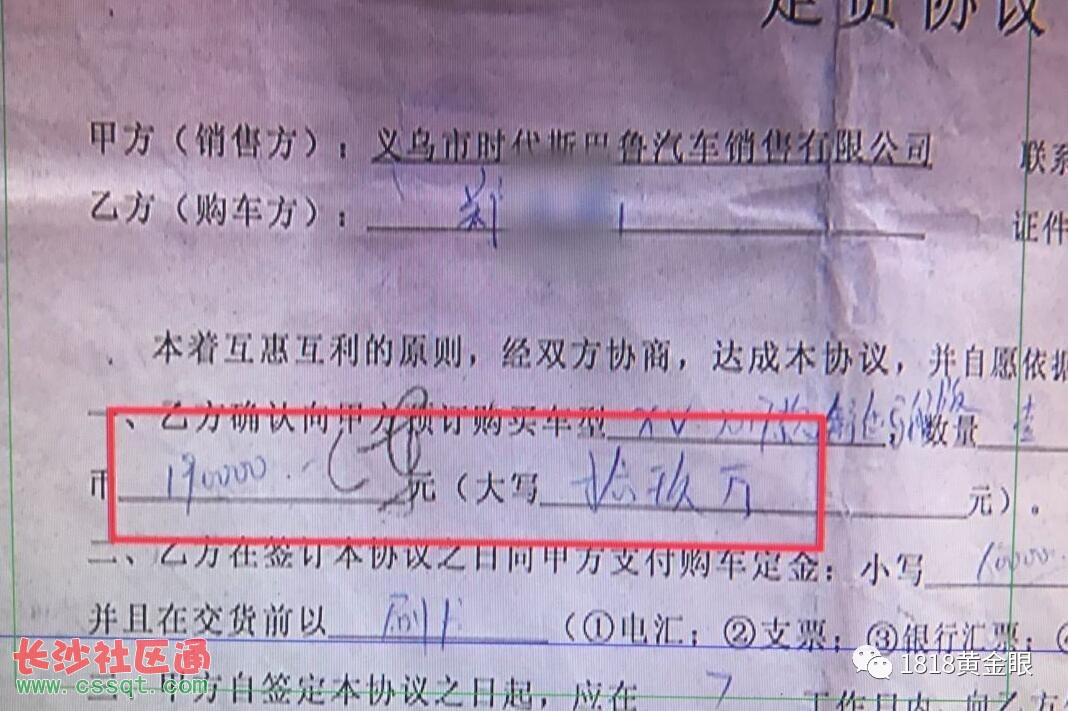 定货协议
甲方（销售方）：义乌市时代斯巴鲁汽车销售有限公司 联系
乙方（购车方）： 证件
本着互惠互利的原则，经双方协商，达成本协议，并自愿依据
一、乙方确认向甲方预订购买车型 XV 数量 壹
币 190000. 元（大写 拾玖万 元）。
二、乙方在签订本协议之日向甲方支付购车定金：小写 10000.
并且在交货前以 刷卡 （①电汇；②支票；③银行汇票；④
三、甲方自签定本协议之日起，应在 7 工作日内，向乙方
长沙社区通
www.cssqt.com
1818黄金眼